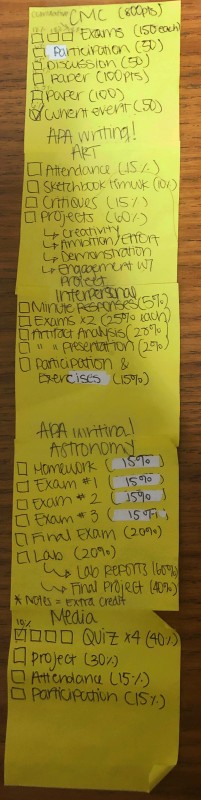 CMC (600pts)
Exams (150 each)
Participation (50)
Discussion (50)
Paper (100pts)
Paper (100)
Current event (50)
APA writing!
ART
Attendance (15%)
Sketchbook Hmwk (10%)
Critiques (15%)
Projects (60%)
↳ Creativity
↳ Ambition/Effort
↳ Demonstration
↳ Engagement w/
Project
Interpersonal
Minute Responses (5%)
Exams x2 (25% each)
Artifact Analysis (20%)
" " Presentation
Participation &
Exercises (15%)
APA writing!
ASTRONOMY
Homework (15%)
Exam #1 (15%)
Exam #2 (15%)
Exam #3 (15%)
Final Exam (20%)
Lab (20%)
↳ Lab Reports (60%)
↳ Final Project (40%)
* Notes = Extra Credit
Media
10%
Quiz x4 (40%)
Project (30%)
Attendance (15%)
Participation (15%)